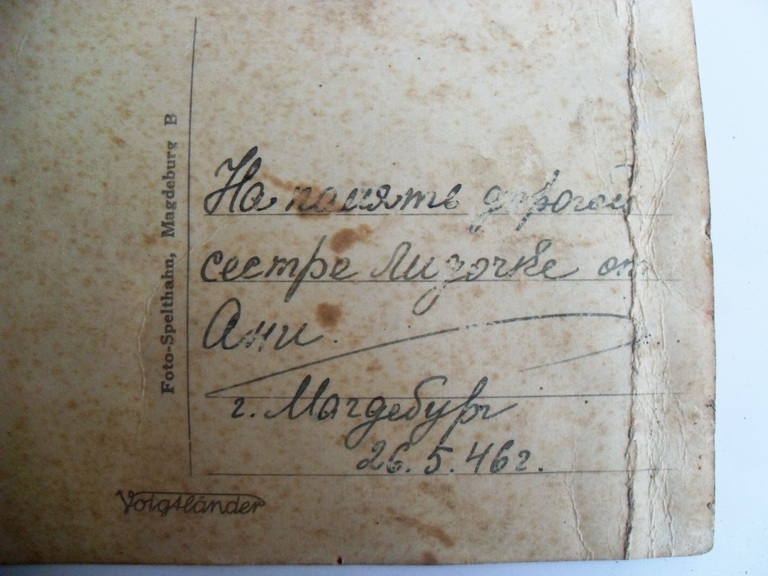 Foto-Spelthahn, Magdeburg B
На память дорогой
сестре Лизочке от
Ани.
г. Магдебург
26.5.46г.
Voigtländer